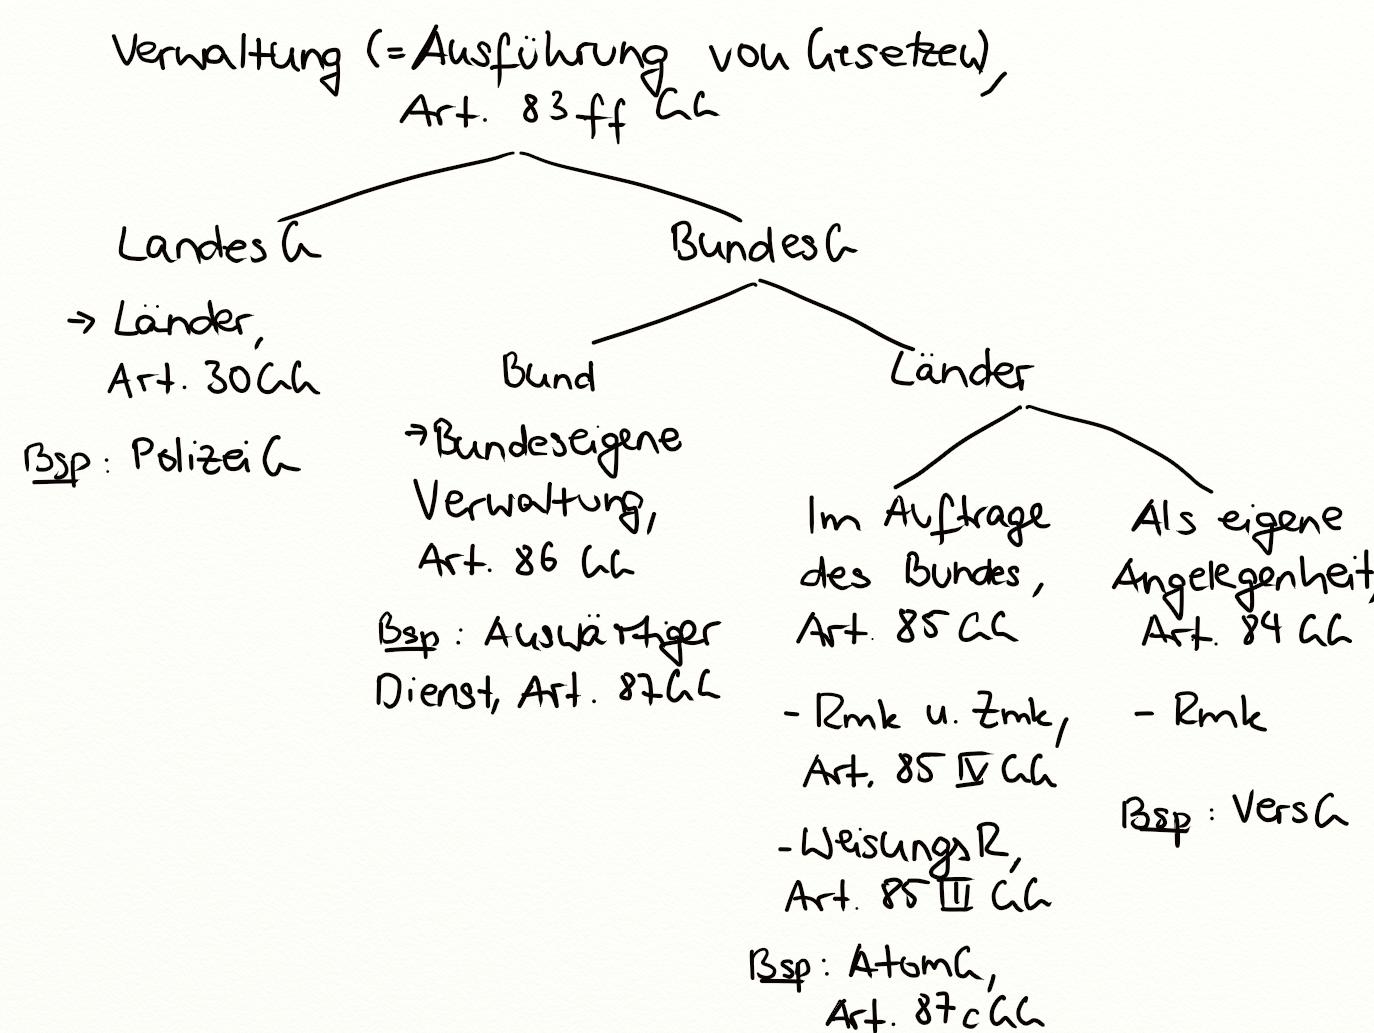 Verwaltung (= Ausführung von Gesetzen),
Art. 83 ff GG
LandesG
BundesG
→ Länder,
Art. 30 GG
Bsp: PolizeiG
Bund
→ Bundeseigene
Verwaltung,
Art. 86 GG
Bsp: Auswärtiger
Dienst, Art. 87 GG
Länder
Im Auftrage
des Bundes,
Art. 85 GG
- Rmk u. Zmk,
Art. 85 IV GG
- WeisungsR,
Art. 85 III GG
Bsp: AtomG,
Art. 87c GG
Als eigene
Angelegenheit,
Art. 84 GG
- Rmk
Bsp: VersG